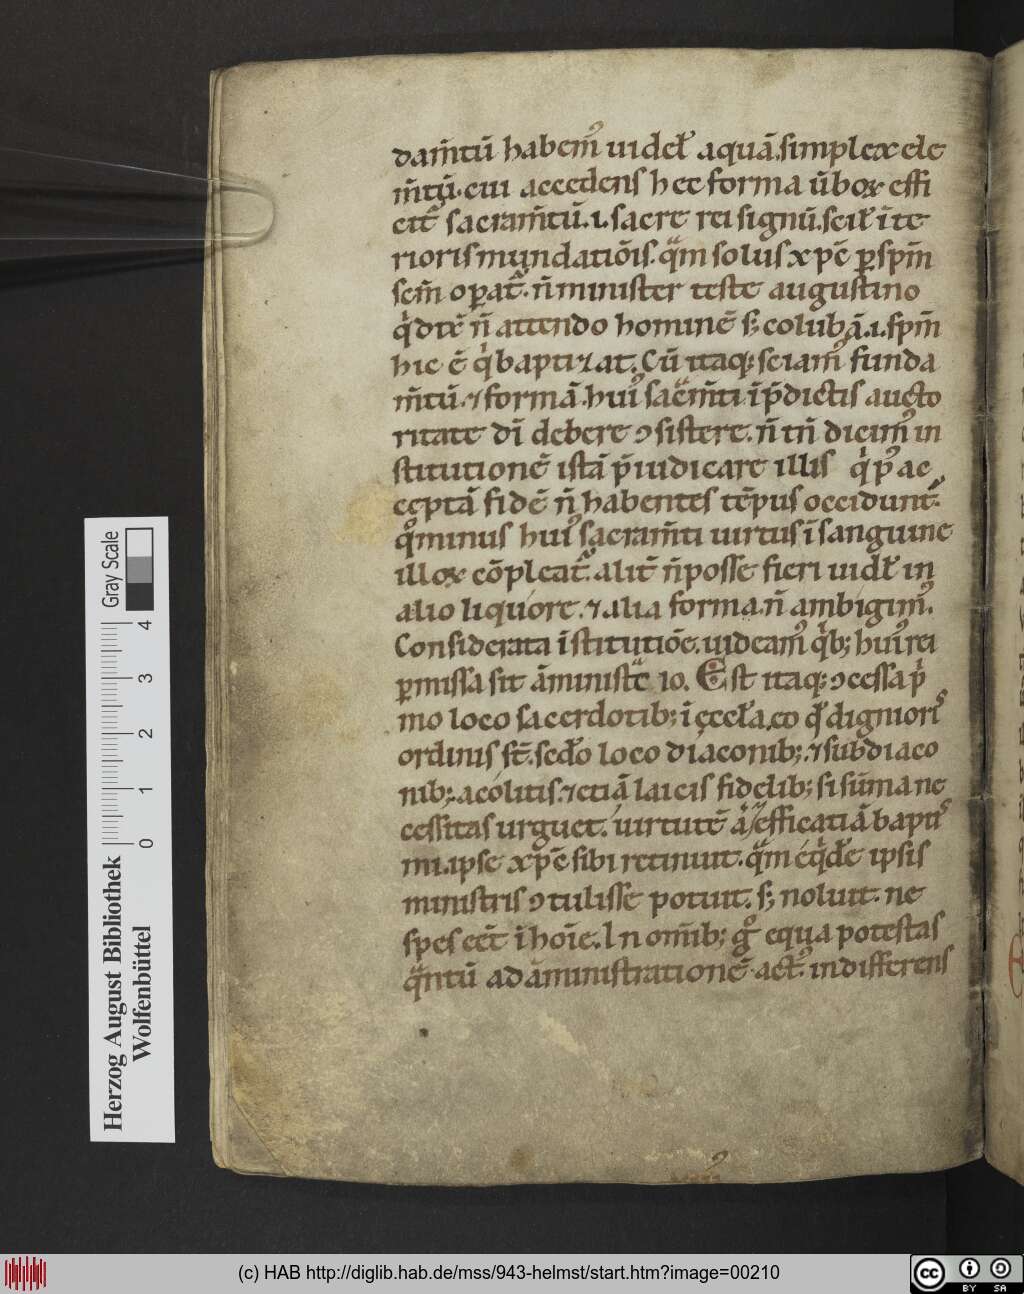 dam̄tū habem᷒ uidel̄ aquā. simplex ele
m̄tū. cui accedens hec forma ūboꝝ effi
cit᷑ sacram̄tū. i. sacre rei signū. scil̄ īte
rioris mundatiōis. qͣm solus xp̄c ꝑ spm̄
sem̄ oꝑat᷑. n̄ minister teste augustino
qͥ dt̄ē n̄ attendo hominē sꝫ colubā. i. spm̄
hic ē qͥ baptizat. Cū itaqꝫ sciam᷒ funda
m̄tū. ⁊ formā. hui᷒ sac̄m̄ti īp̄dictis aucto
ritate dī debere ꝯsistere. n̄ tn̄ dicim᷒ in
stitutionē istā p̄iudicare illis qͥ p᷒ ac
ceptā fidē n̄ habentes tēpus occidunt᷑.
qͦminus hui᷒ sacram̄ti uirtus ī sanguine
illoꝝ cōpleat᷑. alit̄ n̄ posse fieri uidl̄ in
alio liquore. ⁊ alia forma. n̄ ambigim᷒.
Considerata īstitutiōe. uideam᷒ qͥbꝫ hui᷒ rei
ꝑmissa sit āministͣc̄io. Est itaqꝫ ꝯcessa pͥ
mo loco sacerdotibꝫ ī ęccl̄a. eo qđ dignioris
ordinis st̄. scđo loco diaconibꝫ. ⁊ subdiaco
nibꝫ. acolitis. ⁊ etiā laicis fidelibꝫ si sūma ne
cessitas urguet. uirtutē aͥ efficatiā baptis
mi. ipse xp̄c sibi retinuit. qͣm eqͥdē ipsis
ministris ꝯtulisse potuit. sꝫ noluit. ne
spes eēt ī hoīe. In om̄ibꝫ gͦ equa potestas
qͣntū ad āministrationē. act᷒ indifferens
Herzog August Bibliothek
Wolfenbüttel
Gray Scale
0 1 2 3 4
(c) HAB http://diglib.hab.de/mss/943-helmst/start.htm?image=00210
cc BY SA